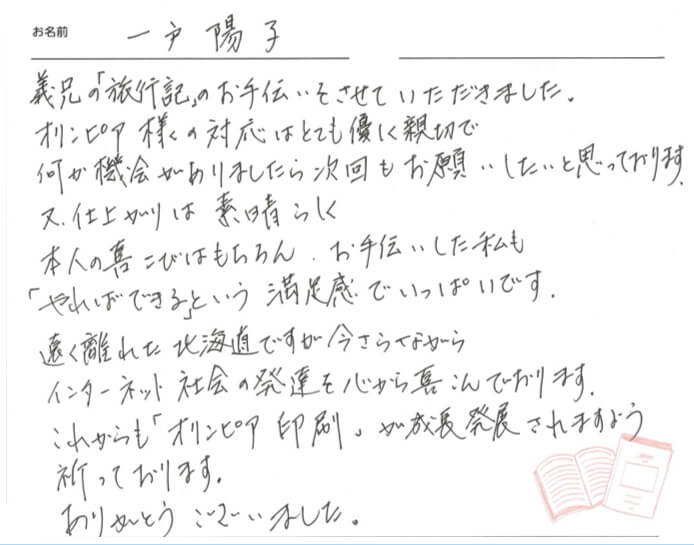 お名前 一戸 陽子
義兄の「旅行記」のお手伝いをさせていただきました。
オリンピア様の対応はとても優しく親切で
何か機会がありましたら次回もお願いしたいと思っております。
又、仕上がりは素晴らしく
本人の喜こびはもちろん、お手伝いした私も
「やればできる」という満足感でいっぱいです。
遠く離れた北海道ですが今さらながら
インターネット社会の発達を心から喜こんでおります。
これからも「オリンピア印刷」が成長発展されますよう
祈っております。
ありがとうございました。